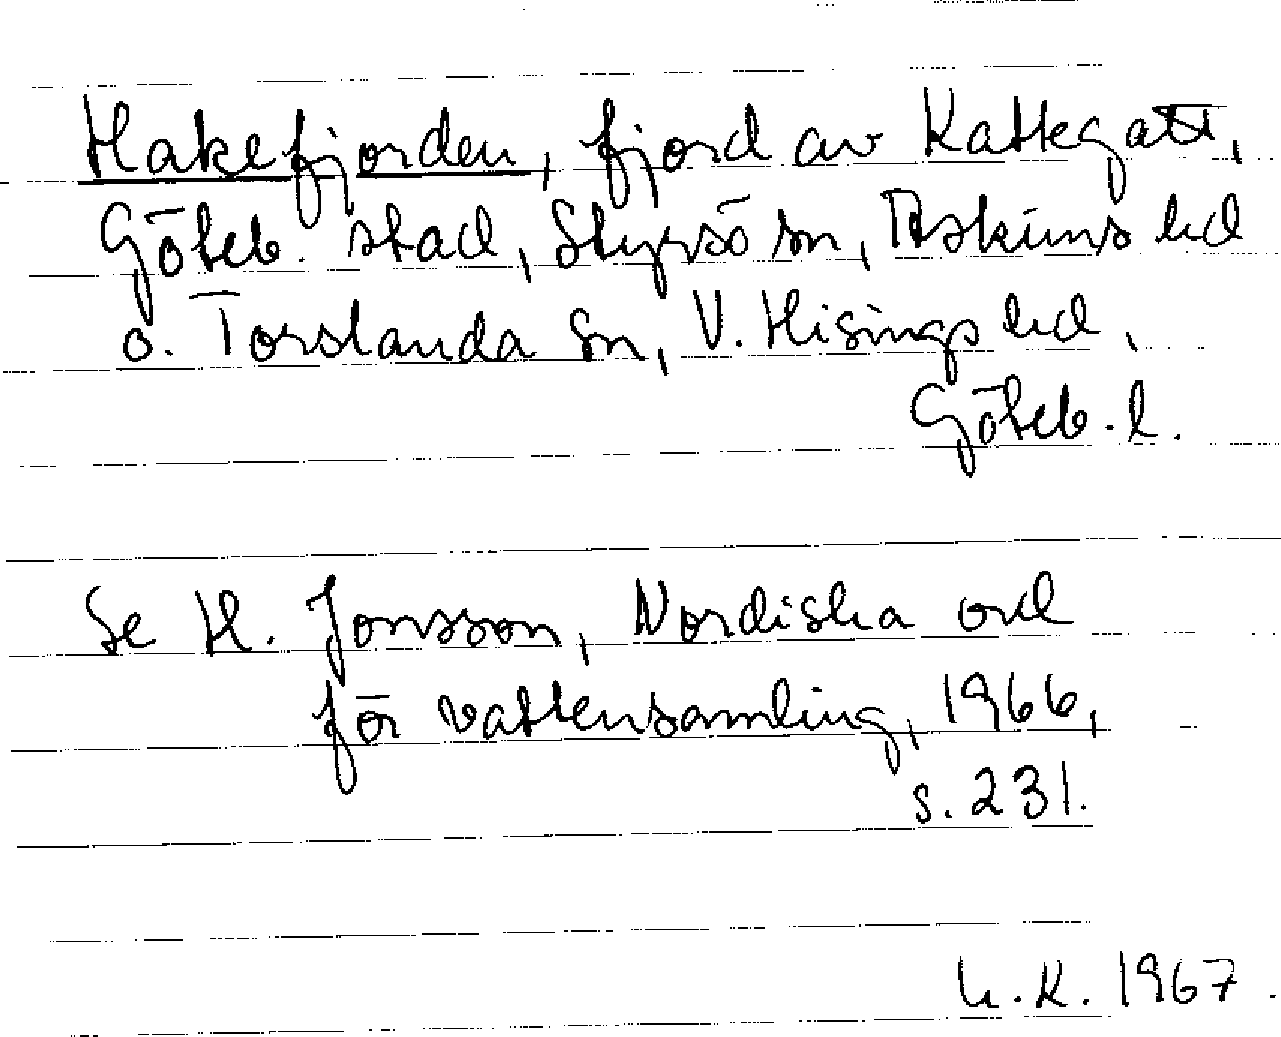 Hakefjorden, fjord av Kattegatt,
Göteb. stad, Styrsö sn, Askims hd
o. Torslanda sn, V. Hisings hd,
Göteb. l.
Se H. Jonsson, Nordiska ord
för vattensamling, 1966,
s. 231.
K. 1967.